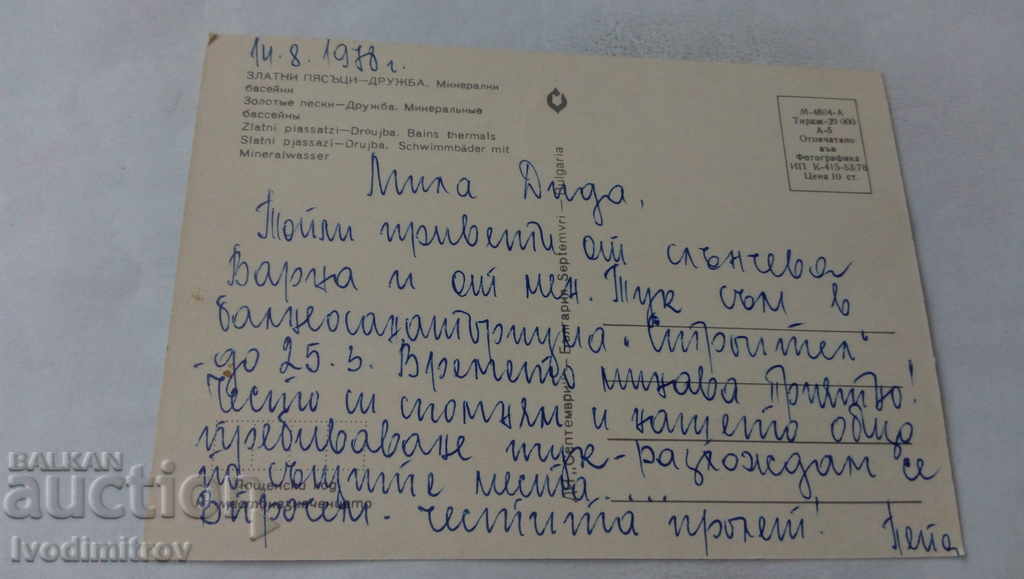 14.8.1978 г.
ЗЛАТНИ ПЯСЪЦИ—ДРУЖБА. Минерални
басейни
Золотые пески—Дружба. Минеральные
бассейны
Zlatni piassatzi—Droujba. Bains thermals
Slatni pjassazi—Drujba. Schwimmbäder mit
Mineralwasser
М-4604-А
Тираж-29 000
А-5
Отпечатано
във
Фотографика
ИП К-415-53/78
Цена 10 ст.
Мила Дида,
Топли привети от слънчева
Варна и от мен. Тук съм в
балнеосанаториума „Строител"
- до 25.3. Времето минава приятно!
Често си спомням и нашето общо
пребиваване тук - разхождам се
по същите места....
Впрочем - честита пролет! Петя
ДП „Септември" България Septemvri — Bulgaria
Пощенски код
местоназначението
BALKAN
auction
Ivodimitrov